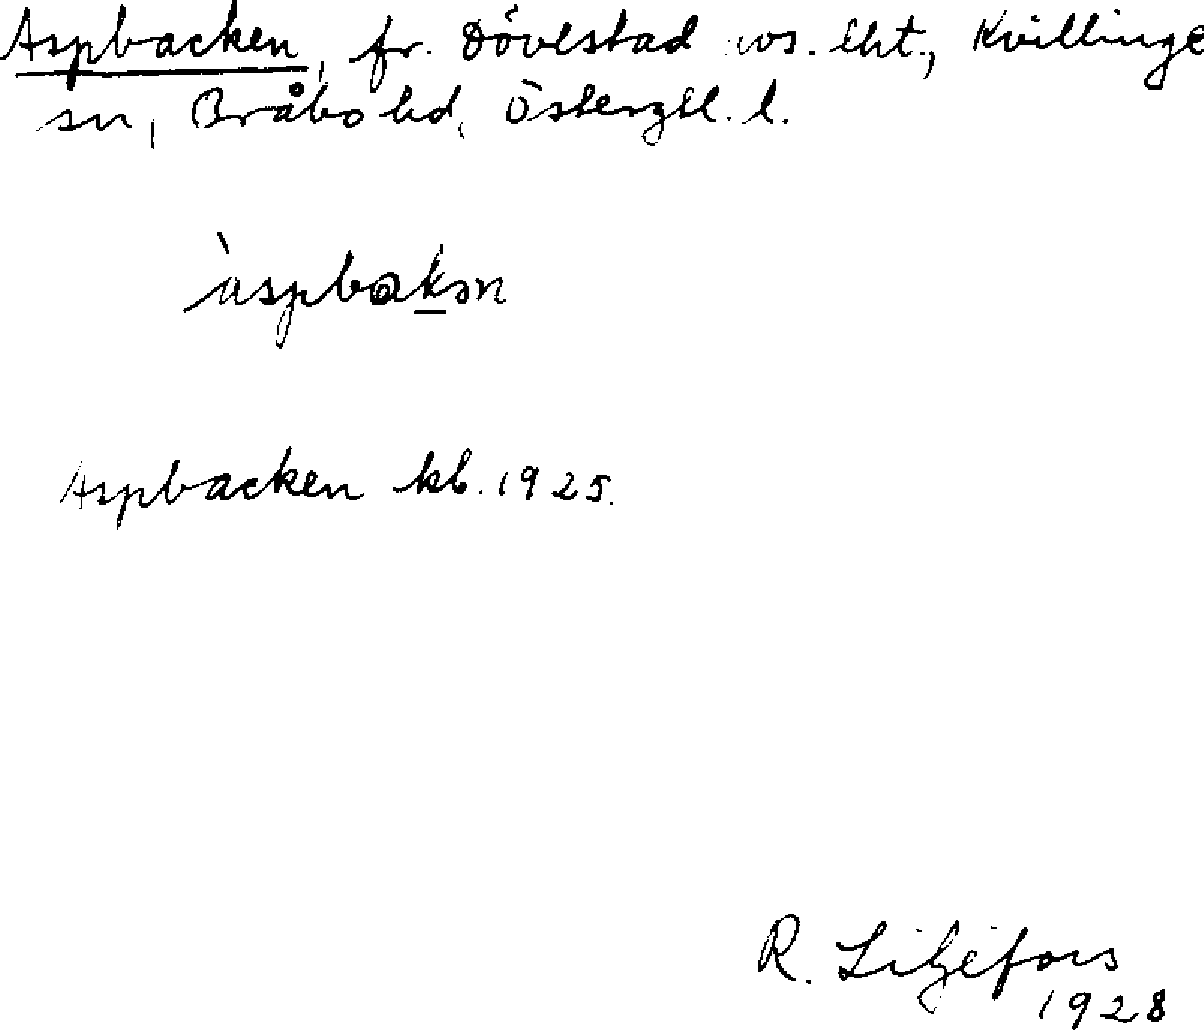 Aspbacken, fr. Dövestad ws. lht., Kvillinge
sn, Bråbo hd, Östergtl. l.
àspbak̲ən
Aspbacken kb. 1925.
R. Liljefors
1928